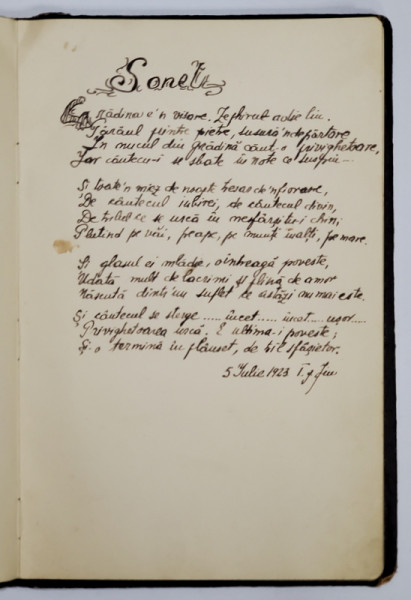 Sonet
Grădina e'n visare. Zefirul adie lin.
Pârâul printre pietre, susură'ndepărtare
În nucul din grădină cânt-o privighetoare,
Iar cântecu-i se sbate în note ce suspin...
Și toate'n miez de noapte tresar de'nfiorare,
De cântecul iubirei, de cântecul divin,
De trilul ce se urcă în nesfârșitu-i chin,
Plutind pe văi, pe ape, pe munți înalți, pe mare.
Și glasul ei mlădie, o'ntreagă poveste,
Udată mult de lacrimi și plină de amor
Născută dintr'un suflet ce astăzi nu mai este.
Și cântecul se sterge ..... încet..... încet..... ușor.....
Privighetoarea urcă. E ultima-i poveste;
Și-o termină în plânset, de tril sfâșietor.
5 Iulie 1923